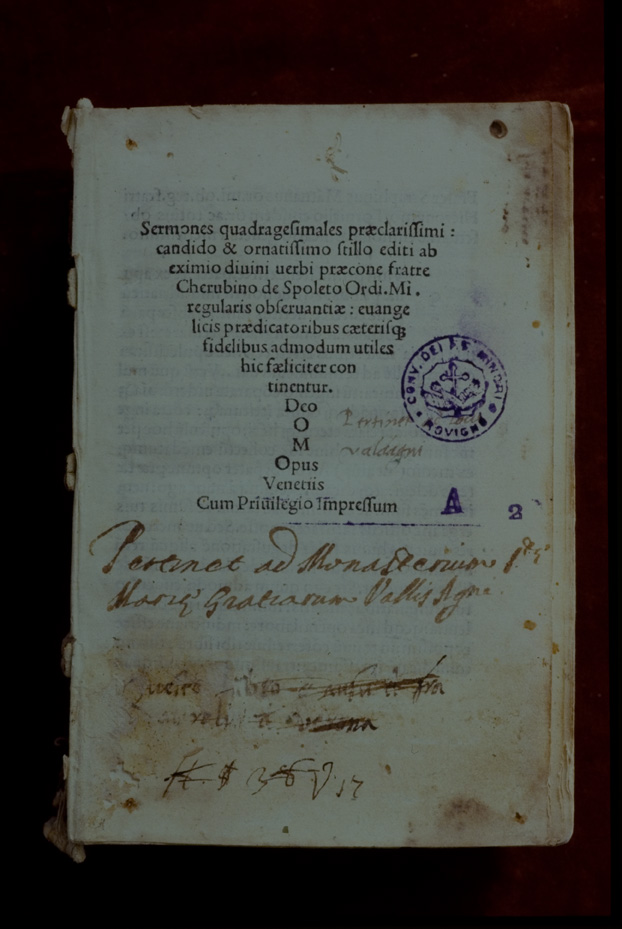 Sermones quadragesimales præclarissimi :
candido & ornatissimo stillo editi ab
eximio diuini uerbi præcone fratre
Cherubino de Spoleto Ordi. Mi.
regularis obseruantiæ : euange
licis prædicatoribus cæterisqꝫ
fidelibus admodum utiles
hic fæliciter con
tinentur.
Deo
O
M
Opus
Venetiis
Cum Priuilegio Impressum
CONV. DEI F.F. MINORI
ROVIGNO
Pertinet
valdagni
A 2
Pertinet ad Monasterium S.tę
Marię Gratiarum Vallis Agni
Questo libro
36 V 17